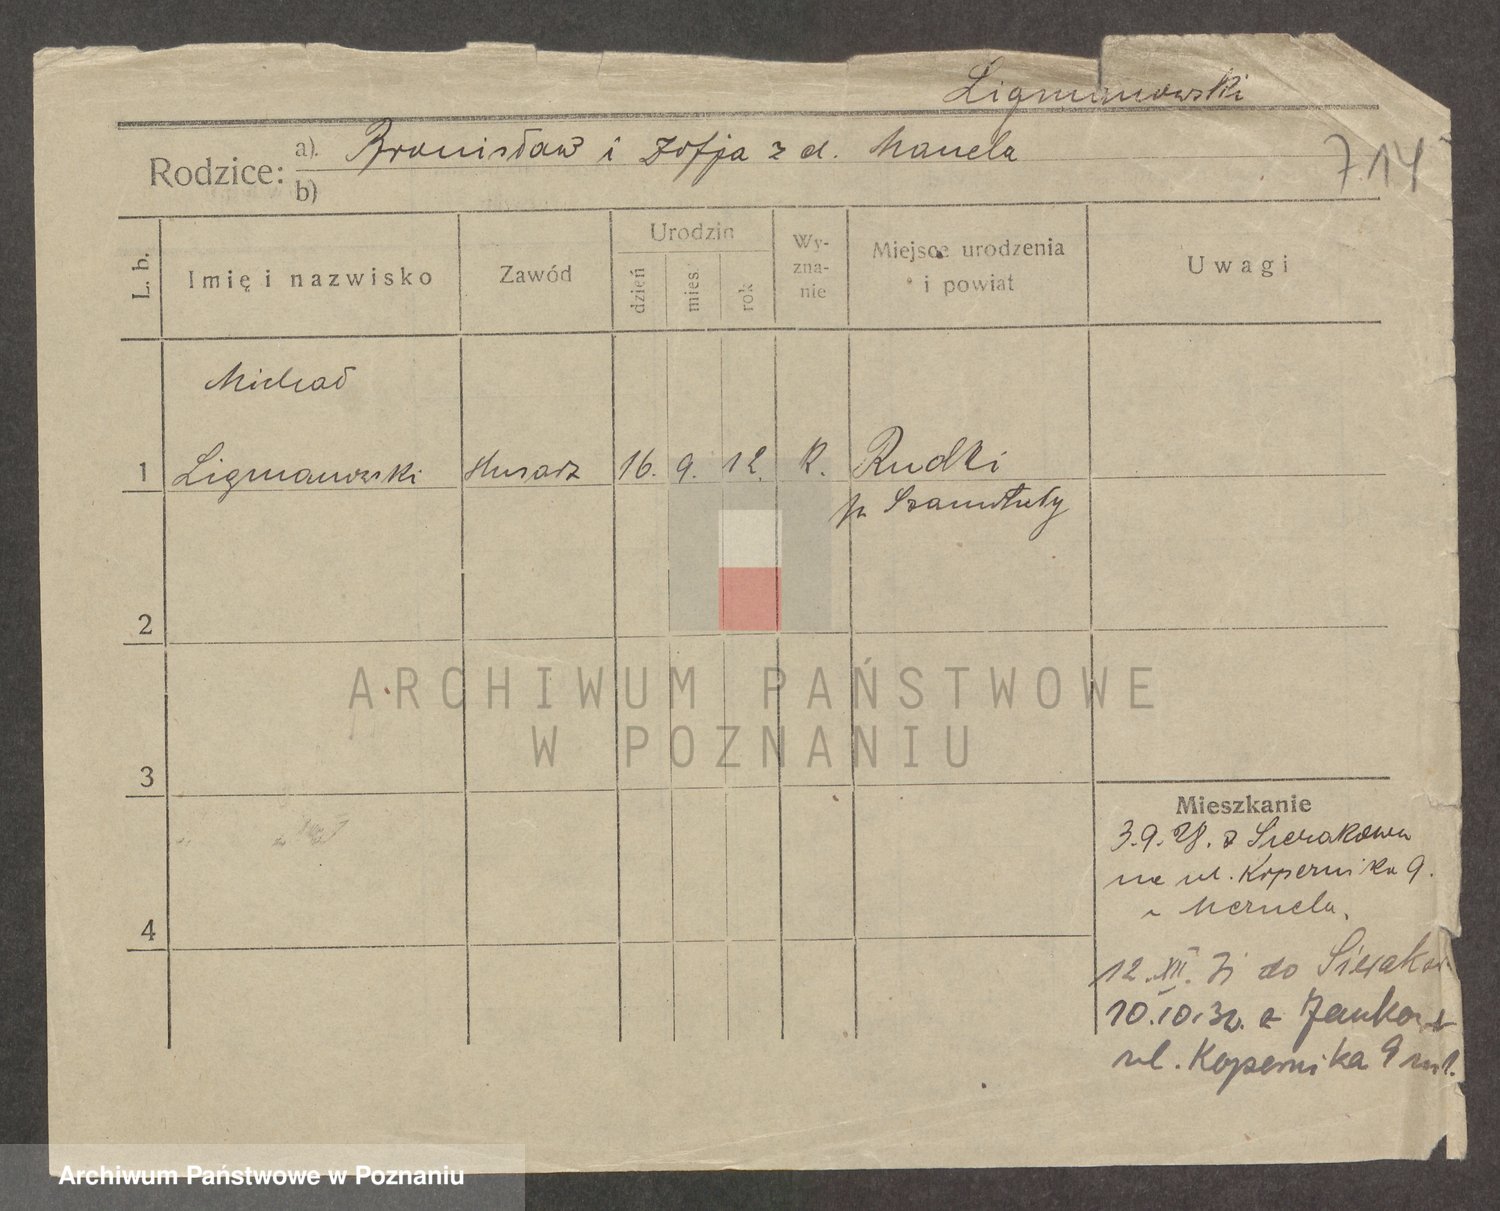 Ligmanowski
Rodzice: a). Bronisław i Zofja z d. Manela
b)
714
L. b.
Imię i nazwisko
Zawód
Urodzin
dzień
mies.
rok
Wy-
zna-
nie
Miejsce urodzenia
i powiat
Uwagi
Michał
1 Ligmanowski ślusarz 16. 9. 12. K. Rudki
p. Szamotuły
2
3
4
ARCHIWUM PAŃSTWOWE
W POZNANIU
Mieszkanie
3.9.28. z Sierakowa
na ul. Kopernika 9.
12.XII. do
10.10.32. z
ul. Kopernika 9
Archiwum Państwowe w Poznaniu